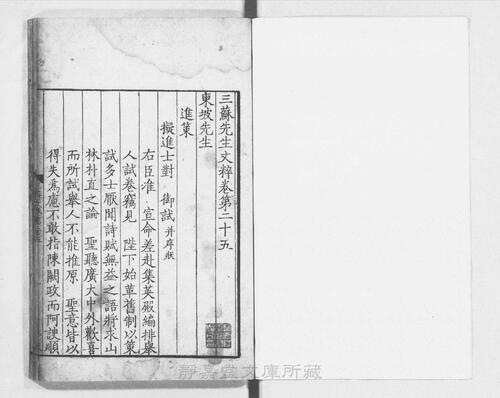 三蘇先生文粹卷第二十五
東坡先生
進策
擬進士對　御試 并序狀
右臣准　宣命差赴集英殿編排舉
人試卷竊見　陛下始革舊制以策
試多士厭聞詩賦無益之語將求山
林朴直之論　聖聽廣大中外歡喜
而所試舉人不能推原　聖意皆以
得失爲慮不敢指陳闕政而阿諛順
靜嘉堂文庫所藏